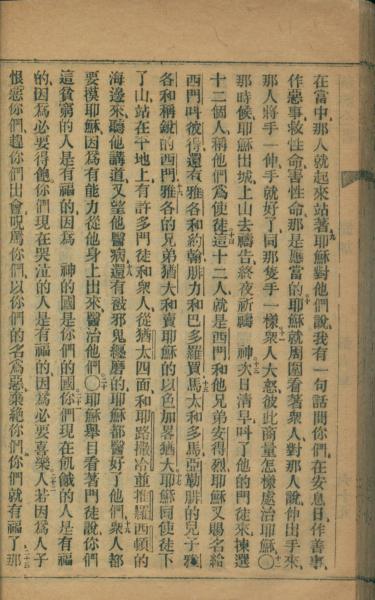 在當中、那人就起來站著、九耶穌對他們說、我有一句話問你們、在安息日、作善事、
作惡事、救性命、害性命、那是應當的、十耶穌就周圍看著衆人、對那人說、伸出手來、
那人將手一伸、手就好了、同那隻手一樣、十一衆人大怒、彼此商量怎樣處治耶穌、〇十二
那時候耶穌出城、上山去禱告、終夜祈禱 神、十三次日清早、叫了他的門徒來、揀選
十二個人、稱他們爲使徒、十四這十二人、就是西門、和他兄弟安得烈、耶穌又賜名給
西門叫彼得、還有雅各和約翰、腓力和巴多羅買、十五馬太和多馬、亞勒腓的兒子雅
各、和稱銳的西門、十六雅各的兄弟猶大、和賣耶穌的以色加畧猶大、十七耶穌同使徒下
了山、站在平地上、有許多門徒和衆人、從猶太四面、和耶路撒冷、並推羅西頓的
海邊來、聽他講道、又望他醫病、十八還有被邪鬼纏磨的、耶穌都醫好了他們、十九衆人都
要摸耶穌、因爲有能力從他身上出來、醫治他們、〇二十耶穌舉目看著門徒說、你們
這貧窮的人、是有福的、因爲 神的國是你們的國、二十一你們現在飢餓的人、是有福
的、因爲必要得飽、你們現在哭泣的人、是有福的、因爲必要喜樂、二十二人若因爲人子
恨惡你們、趕你們出會、咒罵你們、以你們的名爲惡、棄絕你們、你們就有福了、二十三那